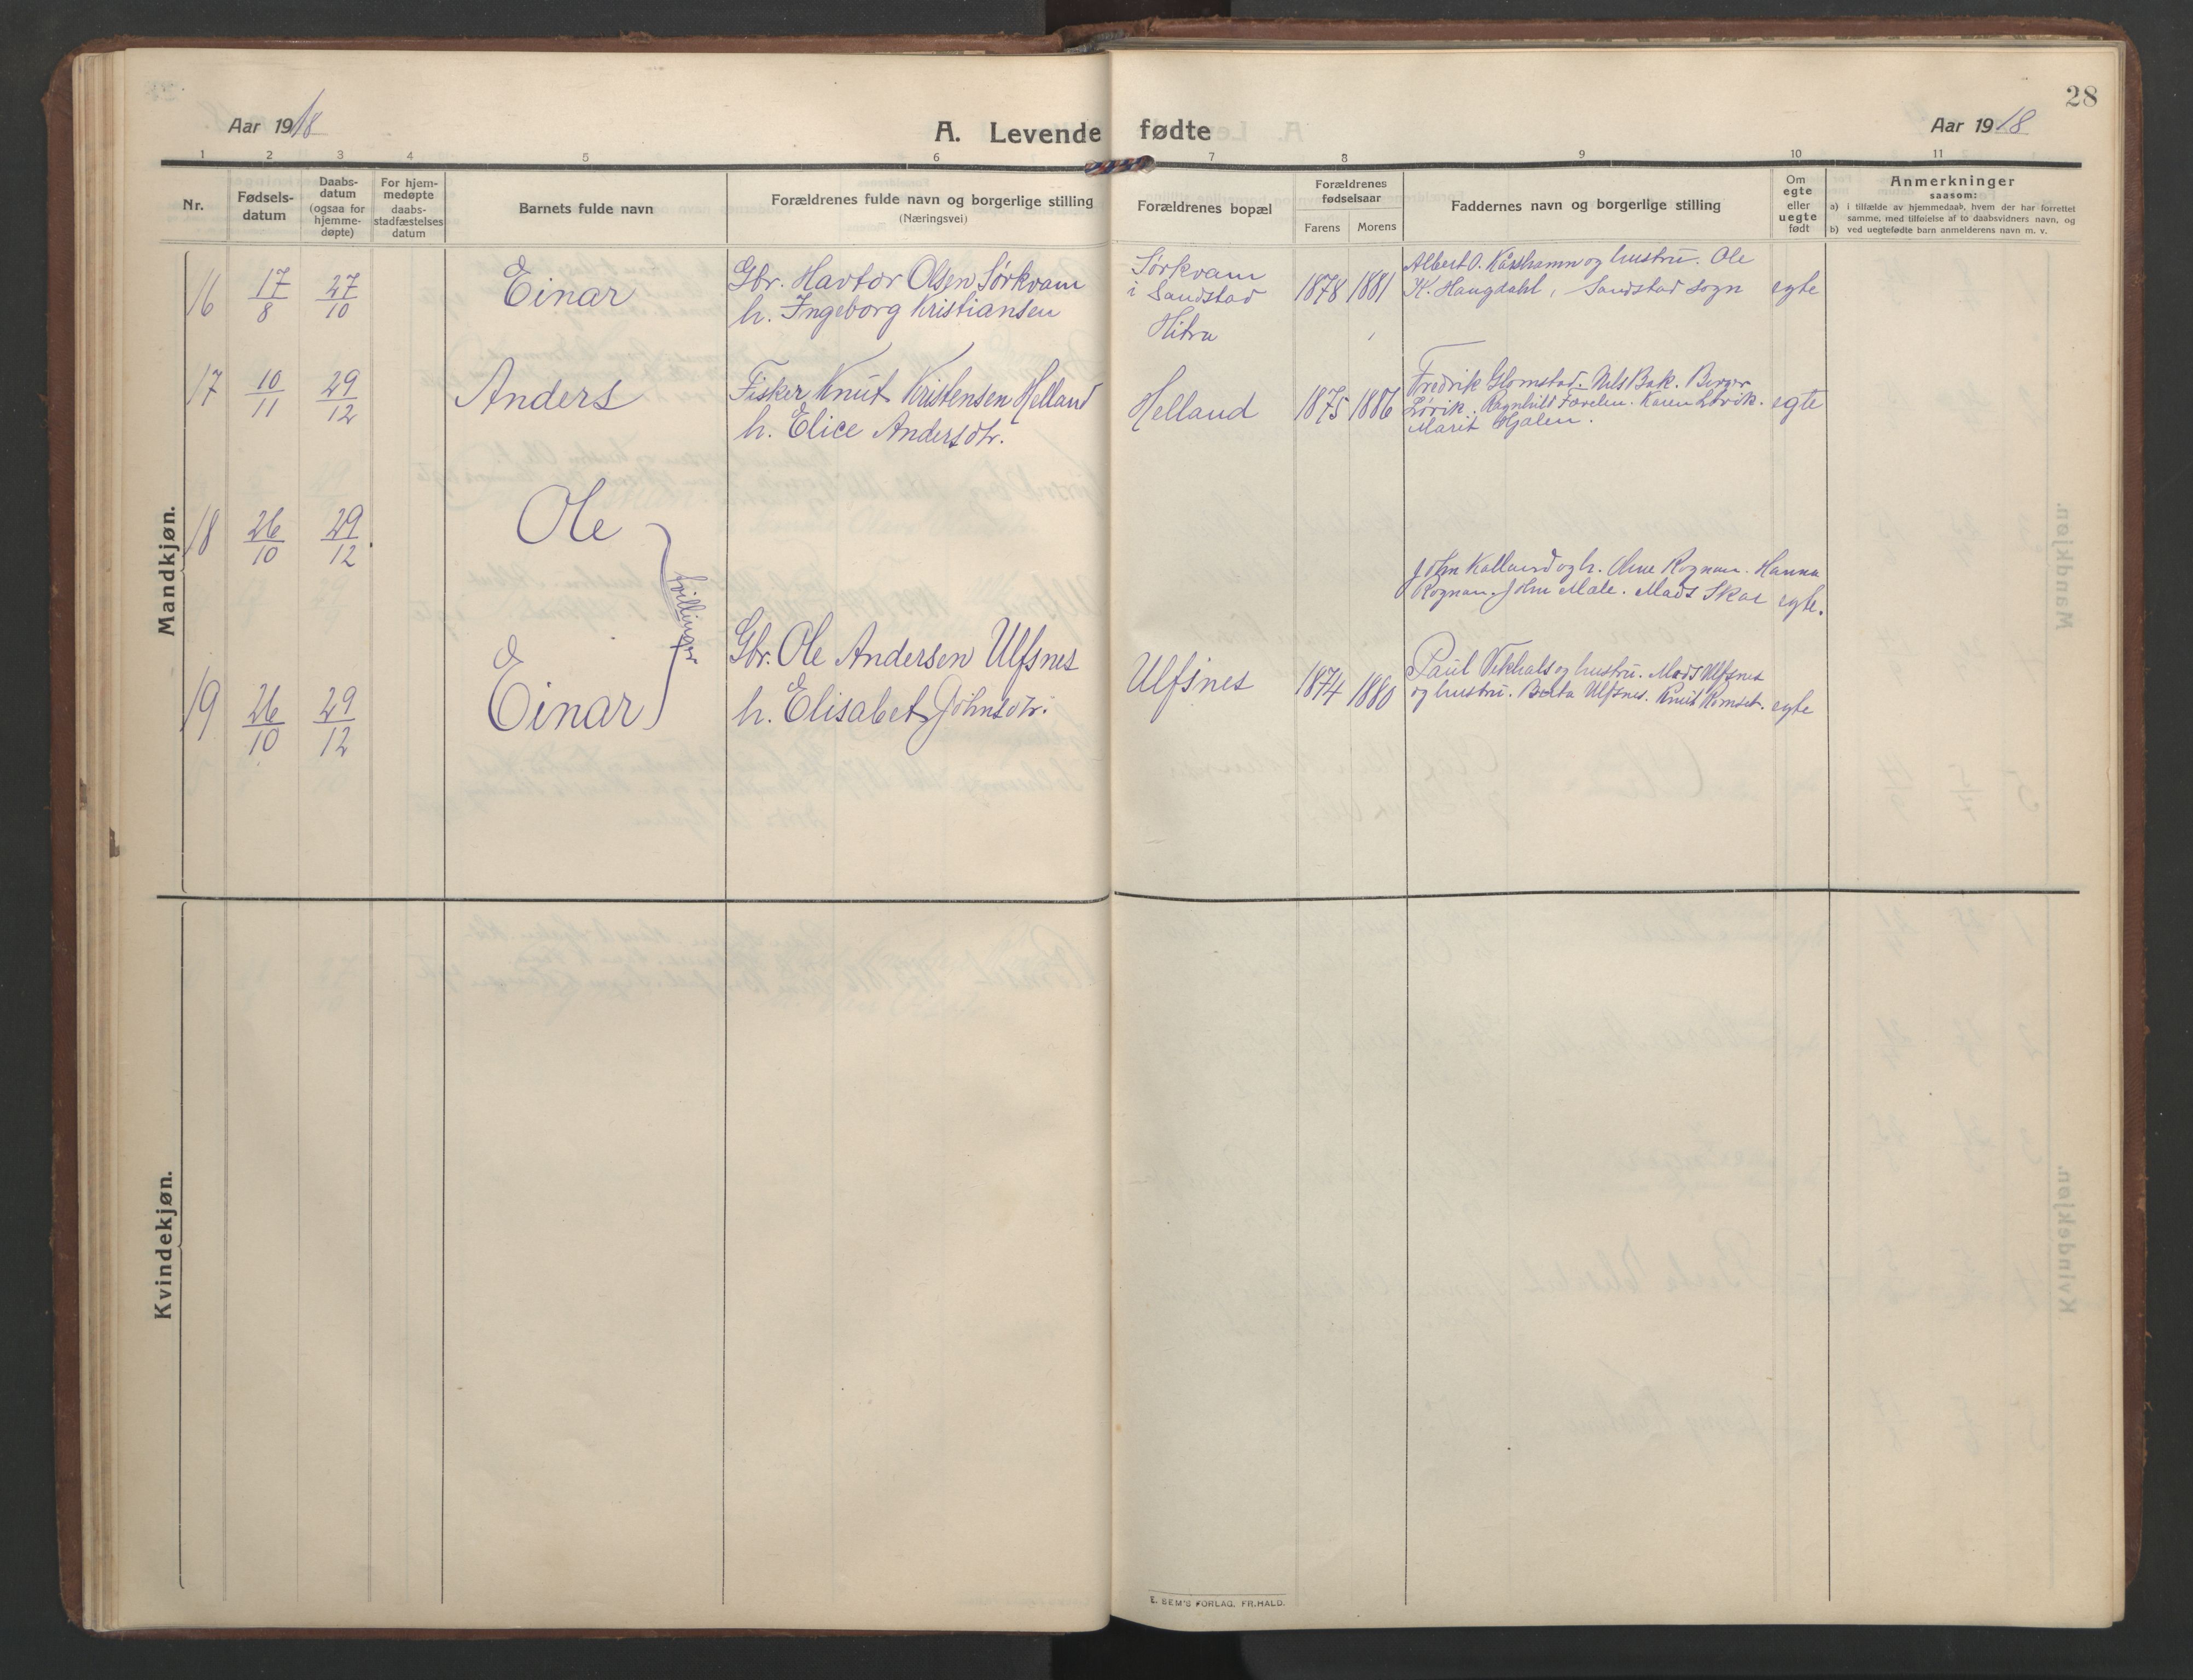 28
Aar 1918
A. Levende fødte
Aar 1918
1 2 3 4 5 6 7 8 9 10 11
Nr.
Fødsels-
datum
Daabs-
datum
(ogsaa for
hjemme-
døpte)
For hjem-
medøpte
daabs-
stadfæstelses
datum
Barnets fulde navn
Forældrenes fulde navn og borgerlige stilling
(Næringsvei)
Forældrenes bopæl
Forældrenes
fødselsaar
Farens Morens
Faddernes navn og borgerlige stilling
Om
egte
eller
uegte
født
Anmerkninger
saasom:
a) i tilfælde av hjemmedaab, hvem der har forrettet
samme, med tilføielse af to daabsvidners navn, og
b) ved uegtefødte barn anmelderens navn m. v.
Mandkjøn.
16 17/8 27/10 Einar
Gbr. Havtor Olsen Sørkvam
h. Ingeborg Kristiansen
Sørkvam
i Sandstad
Hitra
1878 1881
Albert O. og hustru. Ole
K. Haugdahl, Sandstad sogn
egte
17 10/11 29/12 Anders
Fisker Knut Kristensen Helland
h. Elice Andersdtr.
Helland
1875 1886
Fredrik Glomstad. Nils Bak. Birger
Lervik. Ragnhild. Karen Lervik.
Marit
egte
18 26/10 29/12 Ole
tvillinger
John og h. Rognan. Hanna
Rognan. John Male. Mads Skar
egte.
19 26/10 29/12 Einar
Gbr. Ole Andersen Ulfsnes
h. Elisabet Johnsdtr.
Ulfsnes
1874 1880
Paul Vikhals og hustru. Mads Ulfsnes
og hustru. Berta Ulfsnes. Knut Romset.
egte
Kvindekjøn.
E. SEM'S FORLAG, FR.HALD.